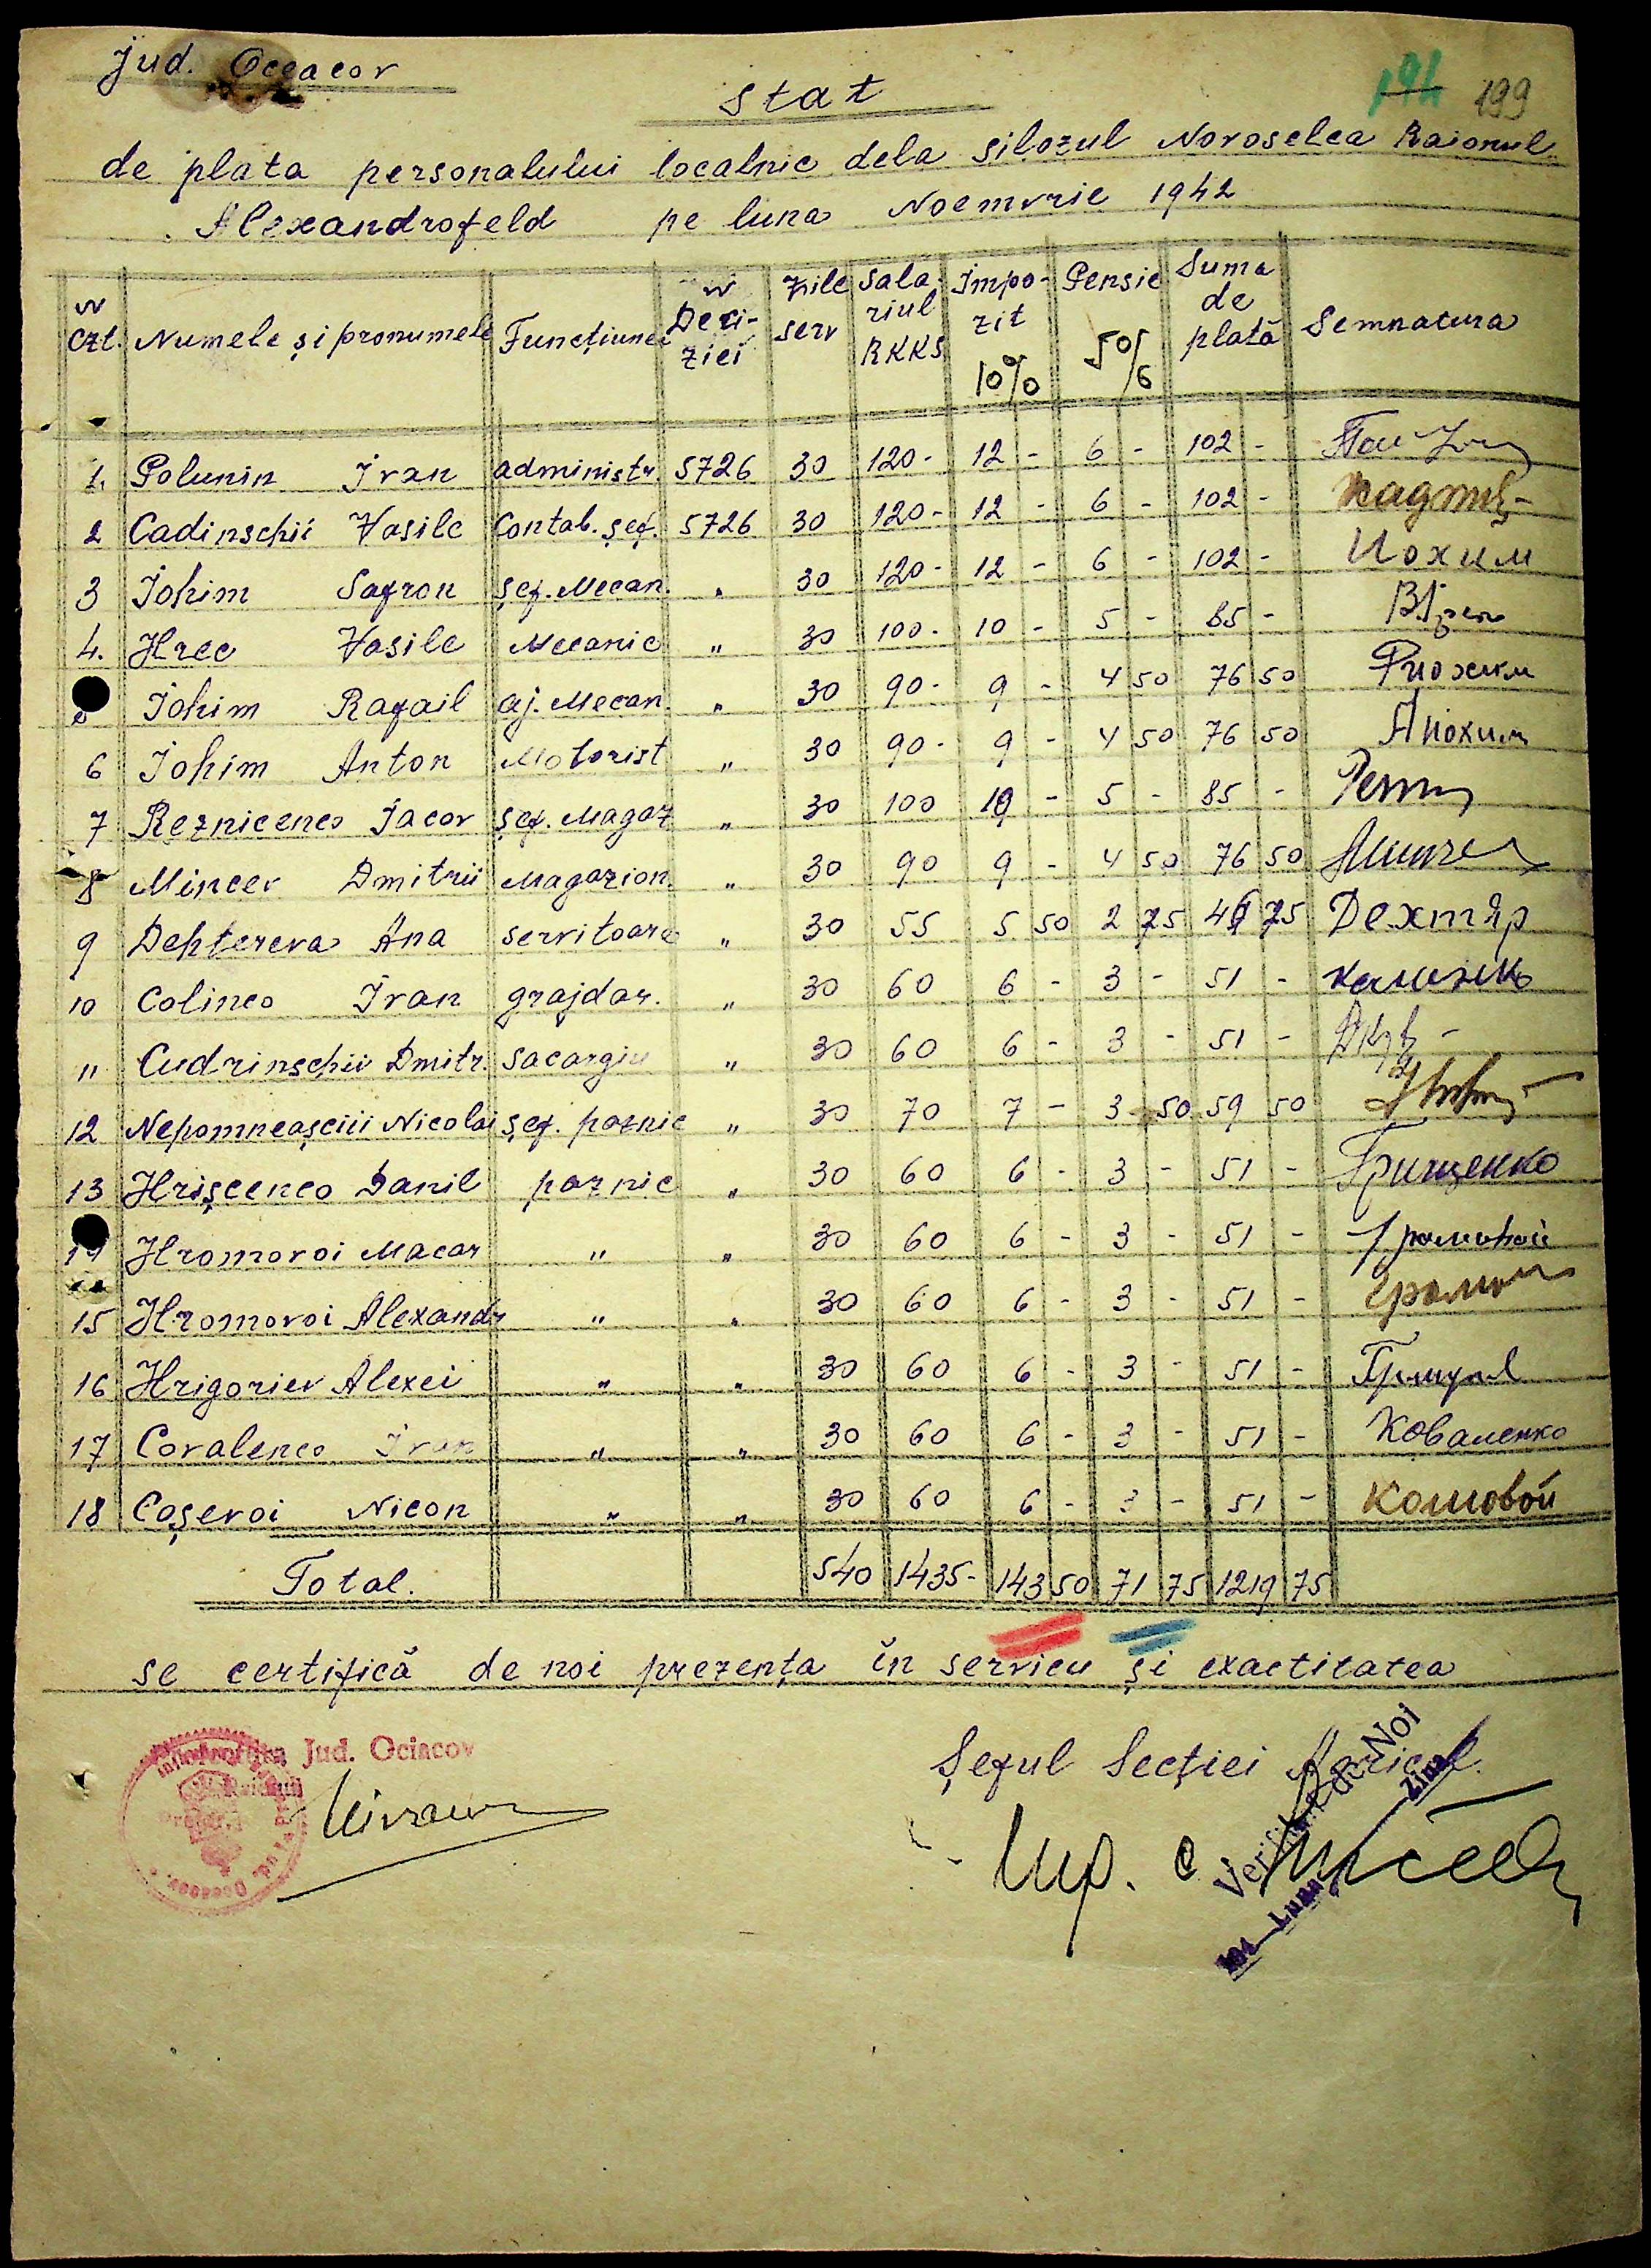 Jud. Oceacov
194 199
Stat
de plata personalului localnic dela silozul Novoselca Raionul
Alexandrofeld pe luna Noemvrie 1942
N Czt. Numele și pronumele Funcțiunea N Deciziei Zile serv Salariul RKKS Impozit 10% Pensie 5% Suma de plată Semnatura
1. Polunin Ivan administr. 5726 30 120- 12 - 6 - 102 -
2 Cadinschii Vasile Contab. șef. 5726 30 120- 12 - 6 - 102 -
3 Johim Safron șef. Mecan. " 30 120- 12 - 6 - 102 - Иохим
4. Hrec Vasile Mecanic " 30 100- 10 - 5 - 85 -
Johim Rafail aj. Mecan. " 30 90- 9 - 4 50 76 50 Риохим
6 Johim Anton Motorist " 30 90- 9 - 4 50 76 50 Аиохим
7 Reznicenco Jacov șef. Magaz " 30 100 10 - 5 - 85 -
8 Mincev Dmitrii Magazion. " 30 90 9 - 4 50 76 50
9 Dehtereva Ana servitoare " 30 55 5 50 2 75 46 75 Дехтяр
10 Colinco Ivan grajdar. " 30 60 6 - 3 - 51 -
11 Cudrinschii Dmitr. sacargiu " 30 60 6 - 3 - 51 -
12 Nepomneașciii Nicolai șef. paznic " 30 70 7 - 3 50 59 50
13 Hrișcenco Danil paznic " 30 60 6 - 3 - 51 - Грищенко
14 Hromovoi Macar " " 30 60 6 - 3 - 51 - Громовой
15 Hromovoi Alexandr " " 30 60 6 - 3 - 51 -
16 Hrigoriev Alexei " " 30 60 6 - 3 - 51 -
17 Covalenco Ivan " " 30 60 6 - 3 - 51 - Коваленко
18 Coșevoi Nicon " " 30 60 6 - 3 - 51 - Кошовой
Total. 540 1435- 143 50 71 75 1219 75
se certifică de noi prezența în serviciu și exactitatea
Jud. Ociacov
Șeful Secției Agricol.
Verificat de Noi
Luna Ziua